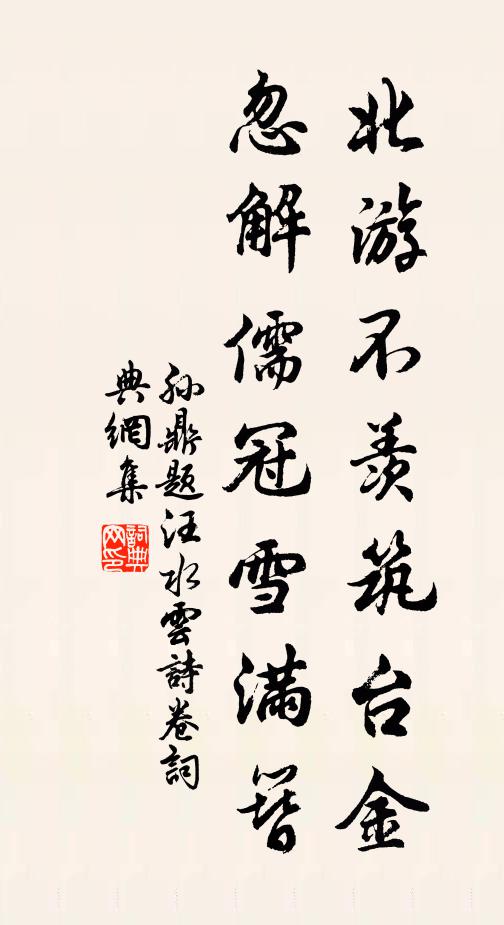 北游不羡筑台金
忽解儒冠雪满簪
孙鼎题汪水雲詩卷詞
典網集
詞典
网印